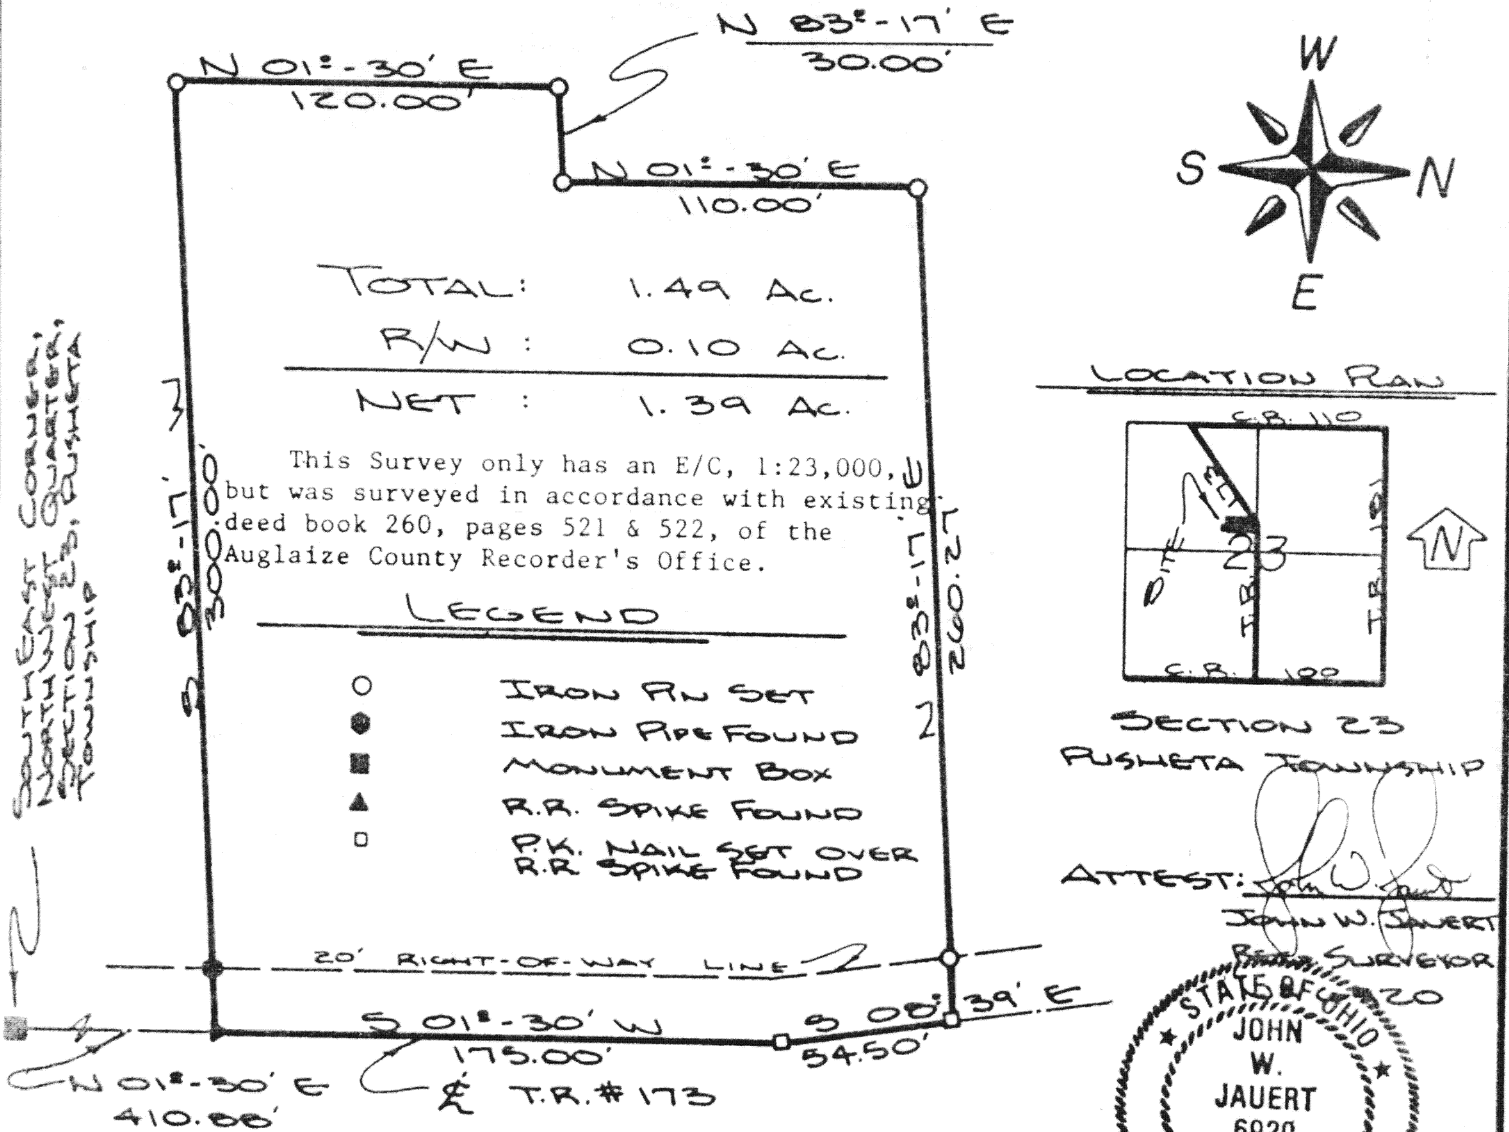 N 83°-17' E
30.00'
N 01°-30' E
120.00'
N 01°-30' E
110.00'
W
S
N
E
TOTAL: 1.49 Ac.
R/W : 0.10 Ac.
NET : 1.39 Ac.
This Survey only has an E/C, 1:23,000,
but was surveyed in accordance with existing
deed book 260, pages 521 & 522, of the
Auglaize County Recorder's Office.
S 83°-17' W
300.00'
N 83°-17' E
260.27'
SOUTHEAST CORNER,
NORTHWEST QUARTER,
SECTION 23, PUSHETA
TOWNSHIP
LEGEND
IRON PIN SET
IRON PIPE FOUND
MONUMENT BOX
R.R. SPIKE FOUND
P.K. NAIL SET OVER
R.R SPIKE FOUND
20' RIGHT-OF-WAY LINE
S 01°-30' W
175.00'
S 08°-39' E
54.50'
N 01°-30' E
410.88'
℄ T.R.# 173
LOCATION PLAN
C.R. 110
SITE
23
T.R.
T.R. 181
C.R. 100
N
SECTION 23
PUSHETA TOWNSHIP
ATTEST: John W. Jauert
JOHN W. JAUERT
SURVEYOR
STATE OF OHIO
JOHN
W.
JAUERT